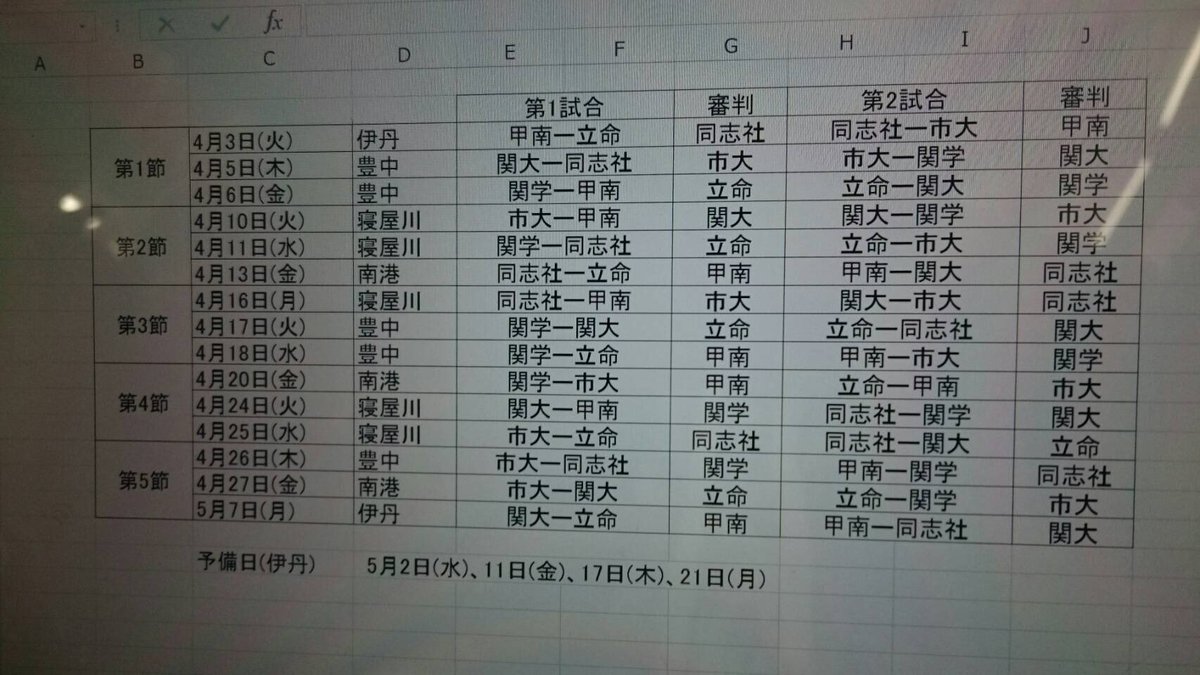 fx
A B C D E F G H I J
第1試合 審判 第2試合 審判
第1節 4月3日(火) 伊丹 甲南ー立命 同志社 同志社ー市大 甲南
4月5日(木) 豊中 関大ー同志社 市大 市大ー関学 関大
4月6日(金) 豊中 関学ー甲南 立命 立命ー関大 関学
第2節 4月10日(火) 寝屋川 市大ー甲南 関大 関大ー関学 市大
4月11日(水) 寝屋川 関学ー同志社 立命 立命ー市大 関学
4月13日(金) 南港 同志社ー立命 甲南 甲南ー関大 同志社
第3節 4月16日(月) 寝屋川 同志社ー甲南 市大 関大ー市大 同志社
4月17日(火) 豊中 関学ー関大 立命 立命ー同志社 関大
4月18日(水) 豊中 関学ー立命 甲南 甲南ー市大 関学
第4節 4月20日(金) 南港 関学ー市大 甲南 立命ー甲南 市大
4月24日(火) 寝屋川 関大ー甲南 関学 同志社ー関学 関大
4月25日(水) 寝屋川 市大ー立命 同志社 同志社ー関大 立命
第5節 4月26日(木) 豊中 市大ー同志社 関学 甲南ー関学 同志社
4月27日(金) 南港 市大ー関大 立命 立命ー関学 市大
5月7日(月) 伊丹 関大ー立命 甲南 甲南ー同志社 関大
予備日(伊丹) 5月2日(水)、11日(金)、17日(木)、21日(月)